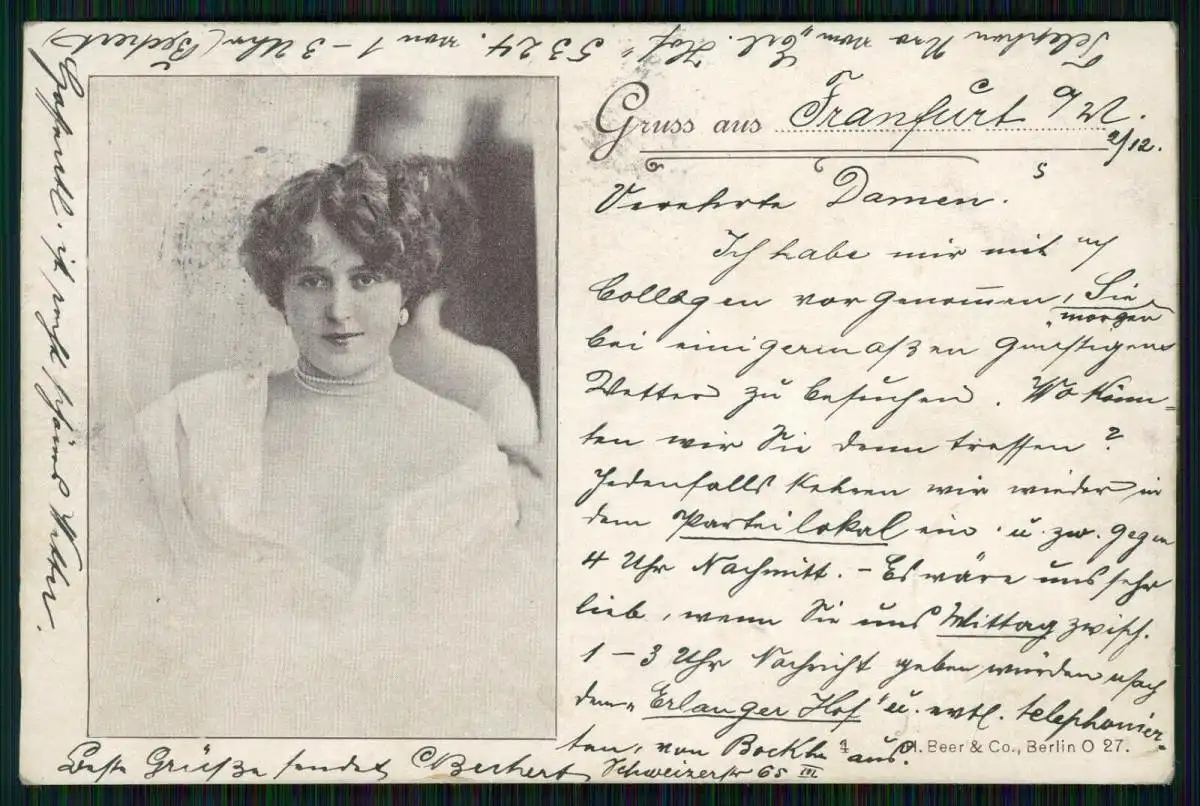 Gruss aus Frankfurt a/M.
2/12.
Verehrte Damen.
Ich habe mir mit
Collegen vorgenommen, Sie
morgen
bei einigermaßen günstigem
Wetter zu besuchen. Wo könn-
ten wir Sie denn treffen?
Jedenfalls kehren wir wieder in
dem Parteilokal ein u. zw. gegen
4 Uhr Nachmitt. - Es wäre uns sehr
lieb, wenn Sie uns Mittag zwisch.
1 - 3 Uhr Nachricht geben würden nach
dem „Erlanger Hof" u. evtl. telephonier-
ten, von aus.
Beste Grüße sendet C Bechert
Schweizerstr 65 III
Hoffentl. ist recht schönes Wetter.
Telephon Nro vom „Erl. Hof" 5324. von 1-3 Uhr (Bechert)
A. Beer & Co., Berlin O 27.